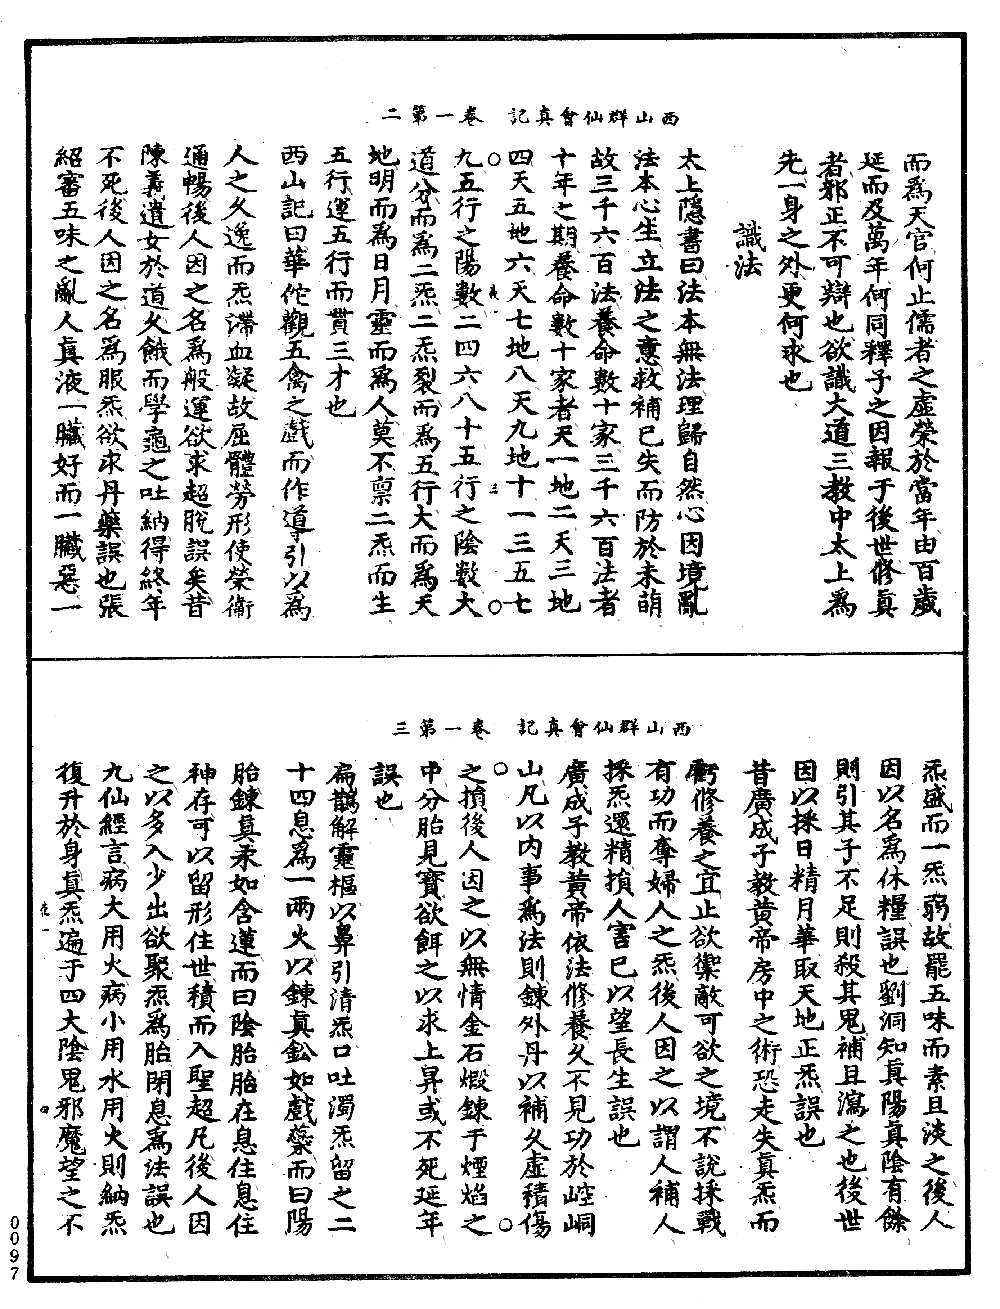 西山群仙會真記　卷一第二
而爲天官何止儒者之虛榮於當年由百歲
延而及萬年何同釋子之因報于後世修眞
者邪正不可辯也欲識大道三教中太上爲
先一身之外更何求也
識法
太上隱書曰法本無法理歸自然心因境亂
法本心生立法之意救補已失而防於未萌
故三千六百法養命數十家三千六百法者
十年之期養命數十家者天一地二天三地
四天五地六天七地八天九地十一三五七
九五行之陽數二四六八十五行之陰數大
道分而爲二炁二炁裂而爲五行大而爲天
地明而爲日月靈而爲人莫不禀二炁而生
五行運五行而貫三才也
西山記曰華佗觀五禽之戲而作導引以爲
人之久逸而炁滯血凝故屈體勞形使榮衛
通暢後人因之名爲般運欲求超脫誤矣昔
陳義遺女於道久餓而學龜之吐納得終年
不死後人因之名爲服炁欲求丹藥誤也張
紹審五味之亂人眞液一臟好而一臟惡一
西山群仙會真記　卷一第三
炁盛而一炁弱故罷五味而素且淡之後人
因以名爲休糧誤也劉洞知眞陽眞陰有餘
則引其子不足則殺其鬼補且瀉之也後世
因以採日精月華取天地正炁誤也
昔廣成子教黃帝房中之術恐走失眞炁而
虧修養之宜止欲禦敵可欲之境不說採戰
有功而奪婦人之炁後人因之以謂人補人
採炁還精損人害己以望長生誤也
廣成子教黃帝依法修養久不見功於崆峒
山凡以内事爲法則鍊外丹以補久虛積傷
之損後人因之以無情金石煅鍊于煙焰之
中分胎見寶欲餌之以求上昇或不死延年
誤也
扁鵲解靈樞以鼻引清炁口吐濁炁留之二
十四息爲一兩火以鍊眞鉛如戲蘂而曰陽
胎鍊眞汞如含蓮而曰陰胎胎在息住息住
神存可以留形住世積而入聖超凡後人因
之以多入少出欲聚炁爲胎閉息爲法誤也
九仙經言病大用火病小用水用火則納炁
復升於身眞炁遍于四大陰鬼邪魔望之不
0097